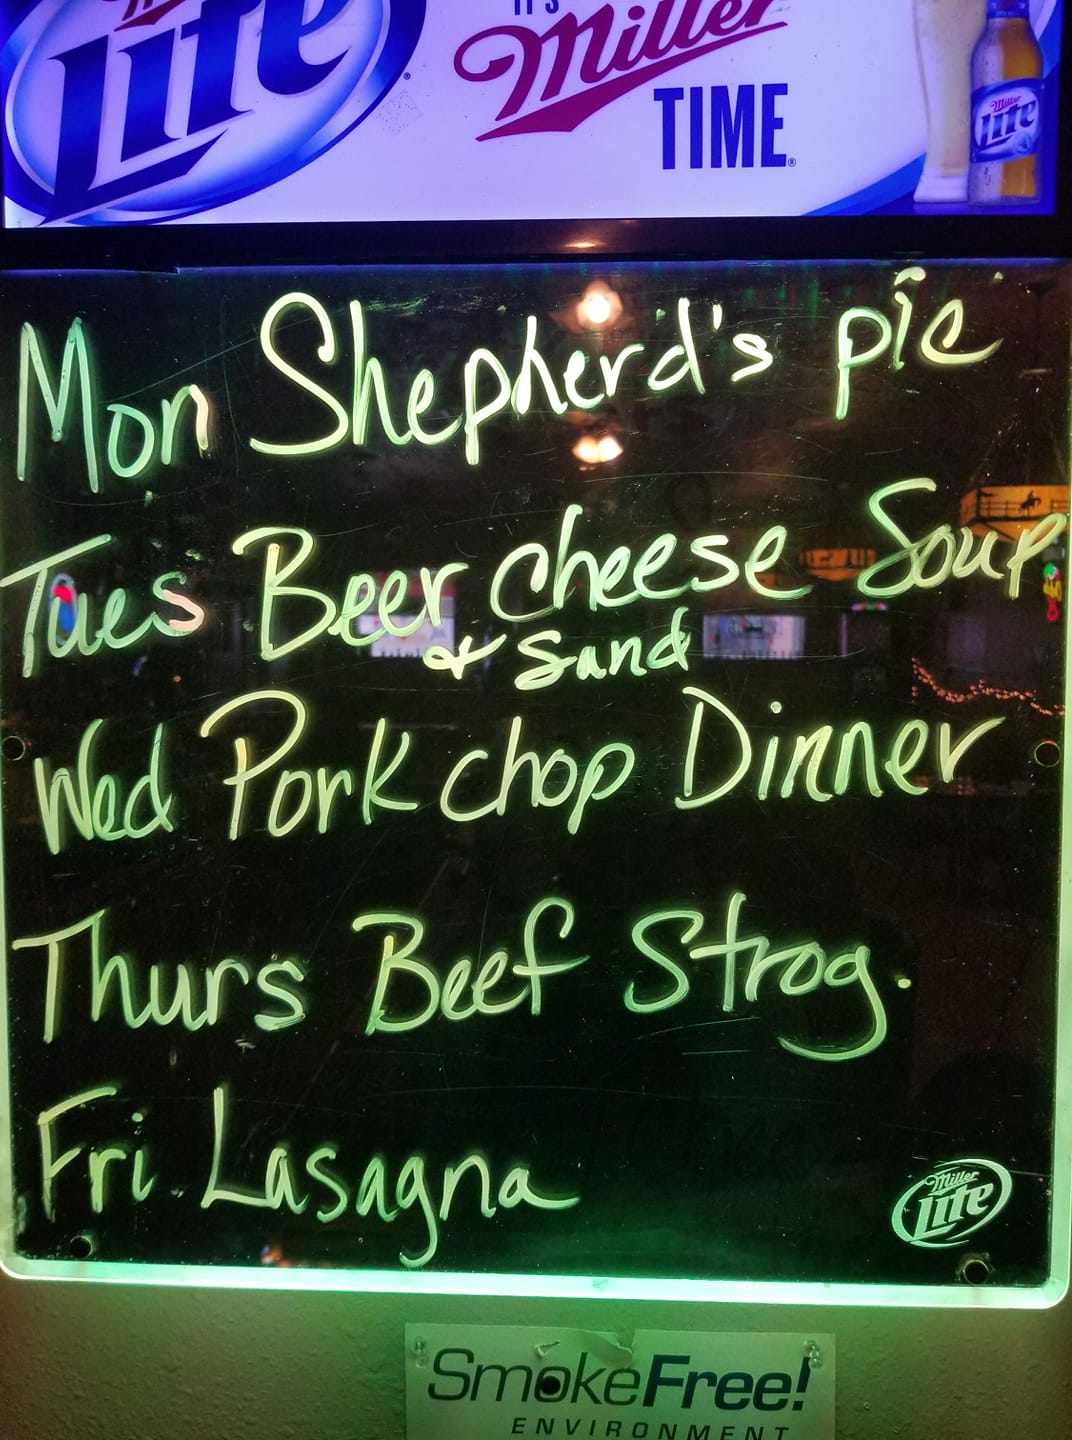 Lite
IT'S
Miller
TIME
Miller
Lite
Mon Shepherd's pie
Tues Beer cheese Soup
& Sand
Wed Pork chop Dinner
Thurs Beef Strog.
Fri Lasagna
Miller
Lite
SmokeFree!
ENVIRONMENT